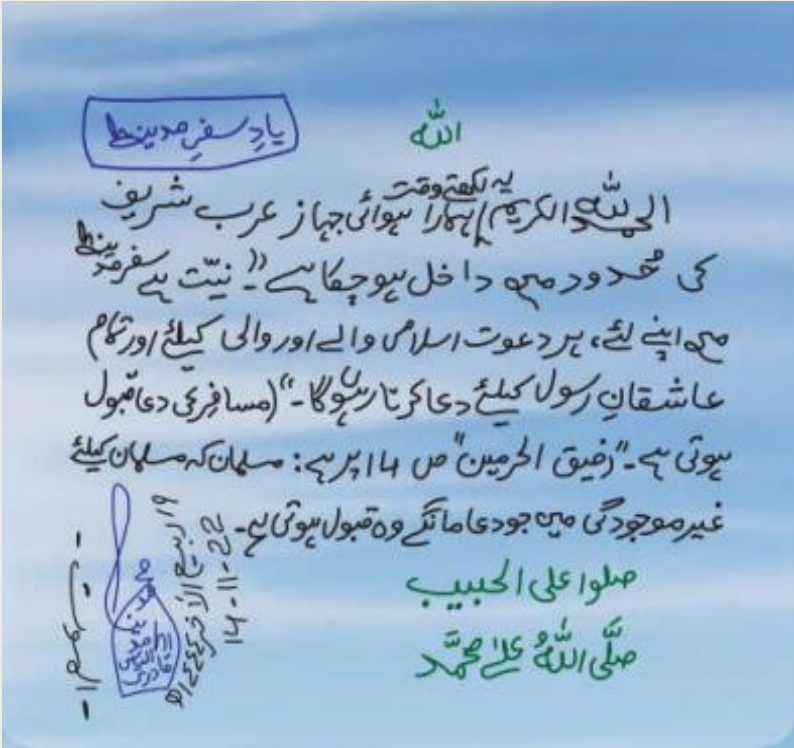 اللّٰه
یادِ سفرِ مدینہ
الحمدللّٰہ الکریم! یہ لکھتے وقت ہمارا ہوائی جہاز عرب شریف
کی حُدود میں داخل ہوچکا ہے "نیّت ہے سفرِ مدینہ
میں اپنے لئے، ہر دعوت اسلامی والے اور والی کیلئے اور تمام
عاشقانِ رسول کیلئے دعا کرتا رہوں گا۔" (مسافر کی دعا قبول
ہوتی ہے۔ "رفیق الحرمین" ص 14 پر ہے: مسلمان کہ مسلمان کیلئے
غیر موجودگی میں جو دعا مانگے وہ قبول ہوتی ہے۔
صلوا علی الحبیب
صلَّی اللّٰہُ علیٰ محمَّد
۱۹ ربیع الآخر ۱۴۴۴ھ
14-11-22
الموت